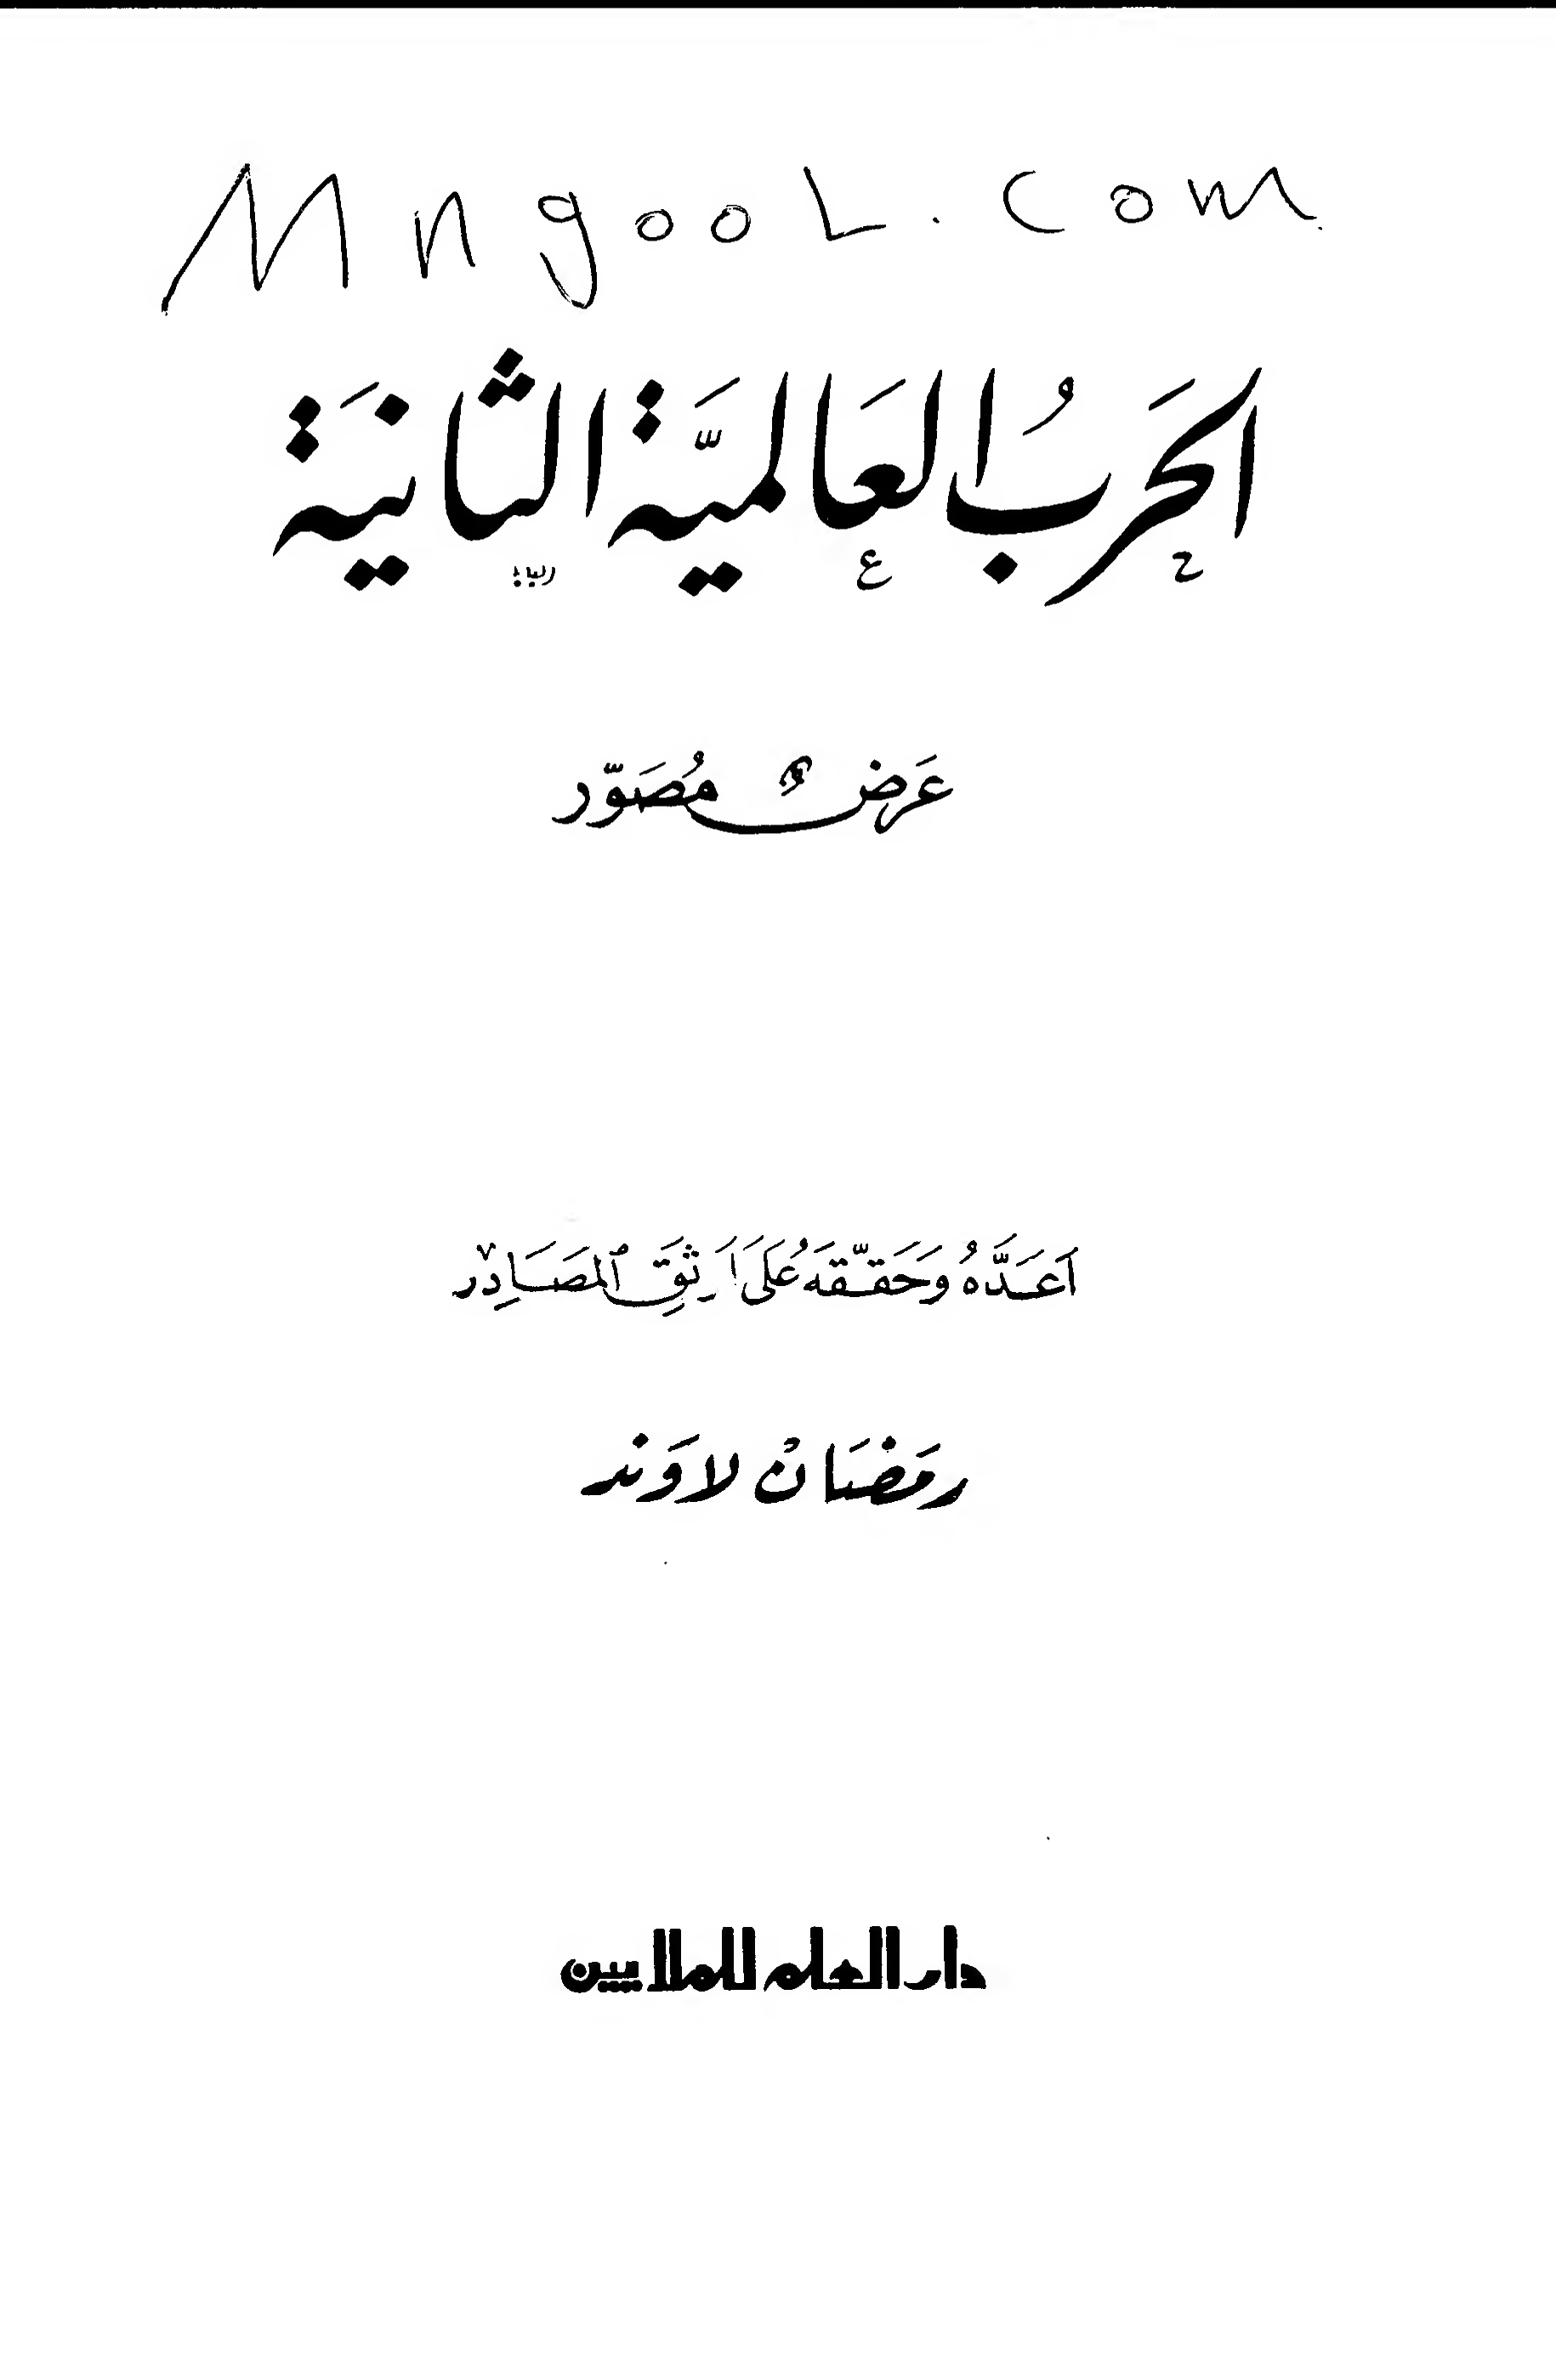 MngooL.com
الحَربُ العَالميَّة الثانيَة
عَرضٌ مُصَوّر
اَعَدَّهُ وَحَقَّقَهُ عَلَى اَوثَقِ المَصَادِر
رمَضَان لاوَند
دار العلم للملايين